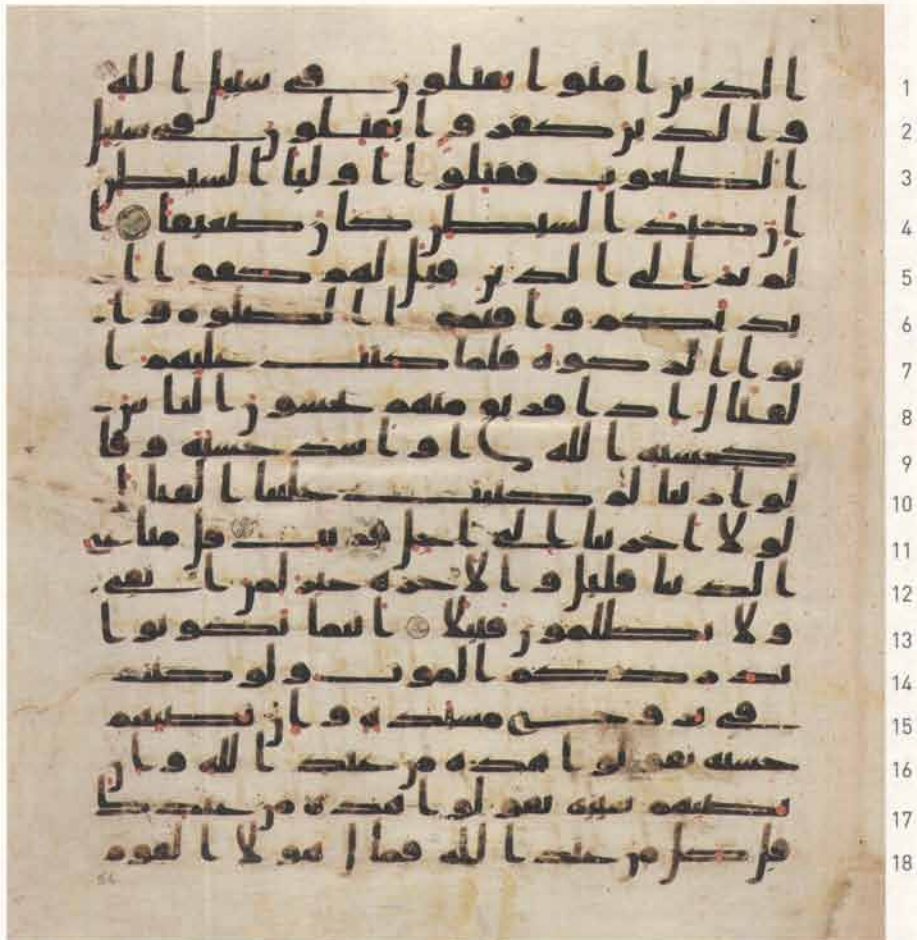 1 الذين امنوا يقتلون في سبيل الله
2 والذين كفروا يقتلون في سبيل
3 الطغوت فقتلوا اوليا الشيطن
4 ان كيد الشيطن كان ضعيفا ا
5 لم تر الى الذين قيل لهم كفوا ا
6 يديكم واقيموا الصلوة وا
7 توا الزكوة فلما كتب عليهم ا
8 لقتال اذا فريق منهم يخشون الناس
9 كخشية الله او اشد خشية وقا
10 لوا ربنا لم كتبت علينا القتال
11 لولا اخرتنا الى اجل قريب قل متع
12 الدنيا قليل والاخرة خير لمن اتقى
13 ولا تظلمون فتيلا اينما تكونوا
14 يدرككم الموت ولو كنتم
15 في بروج مشيدة وان تصبهم
16 حسنة يقولوا هذه من عند الله وان
17 تصبهم سيئة يقولوا هذه من عندك
18 قل كل من عند الله فمال هولا القوم